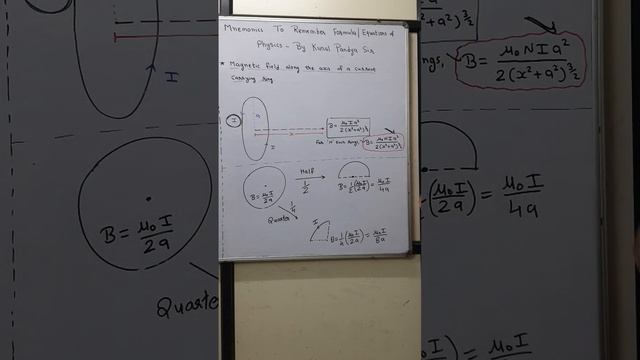 Mnemonics To Remember Formula/Equations of
Physics - By Kunal Pandya Sir
* Magnetic field along the axis of a current
carrying ring
I
a
I
x
B = μ₀Ia²/2(x²+a²)^3/2
For 'N' such rings, B = μ₀NIa²/2(x²+a²)^3/2
B = μ₀I/2a
Half
1/2
B = 1/2(μ₀I/2a) = μ₀I/4a
1/4
Quarter
I
B = 1/4(μ₀I/2a) = μ₀I/8a
I
B = μ₀I/2a
Quarte
+a²)^3/2
ngs, B = μ₀NIa²/2(x²+a²)^3/2
(μ₀I/2a) = μ₀I/4a
μ₀I